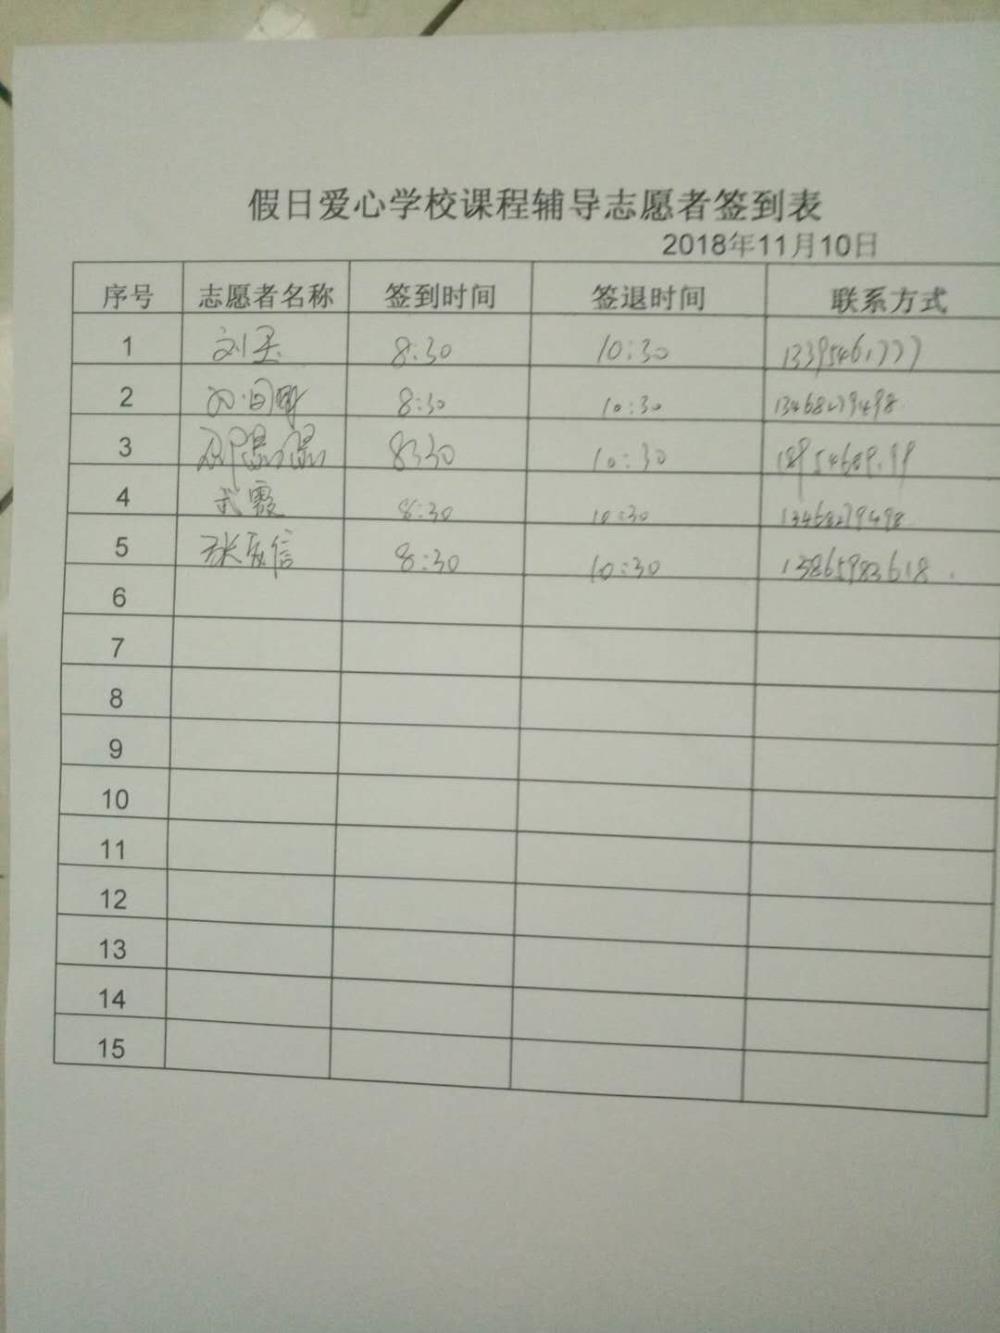 假日爱心学校课程辅导志愿者签到表
2018年11月10日
序号 志愿者名称 签到时间 签退时间 联系方式
1 刘 8:30 10:30 13395461777
2 8:30 10:30 13468279498
3 8:30 10:30
4 武霞 8:30 10:30 13468279498
5 张友信 8:30 10:30 13865983618
6
7
8
9
10
11
12
13
14
15